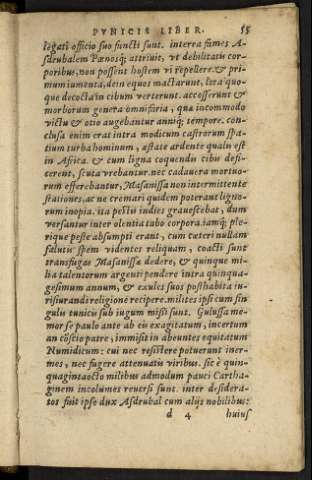 PVNICIS LIBER. 55
legati officio suo functi sunt. interea fames A-
sdrubalem Pœnosq; attriuit, vt debilitatis cor-
poribus, non possent hostem vi repellere. & pri-
mum iumenta, dein equos mactarunt, lora quo-
que decocta in cibum verterunt. accesserunt &
morborum genera omnifaria, quæ incommodo
victu & otio augebantur anniq; tempore. con-
clusa enim erat intra modicum castrorum spa-
tium turba hominum, æstate ardente qualis est
in Africa. & cum ligna coquendis cibis defi-
cerent, scuta vrebantur. nec cadauera mortuo-
rum efferebantur, Masanissa non intermittente
stationes. ac ne cremari quidem poterant ligno-
rum inopia. ita pestis indies grauescebat, dum
versantur inter olentia tabo corpora. iamq; ple-
rique peste absumpti erant, cum cæteri nullam
salutis spem videntes reliquam, coacti sunt
transfugas Masanissæ dedere, & quinque mi-
lia talentorum argenti pendere intra quinqua-
gesimum annum, & exules suos posthabita iu-
risiurandi religione recipere. milites ipsi cum sin
gulis tunicis sub iugum missi sunt. Gulussa me-
mor se paulo ante ab eis exagitatum, incertum
an cōscio patre, immisit in abeuntes equitatum
Numidicum: cui nec resistere potuerunt iner-
mes, nec fugere attenuatis viribus. sic è quin-
quagintaocto milibus admodum pauci Cartha-
ginem incolumes reuersi sunt. inter desidera-
tos fuit ipse dux Asdrubal cum alijs nobilibus:
d 4 huius